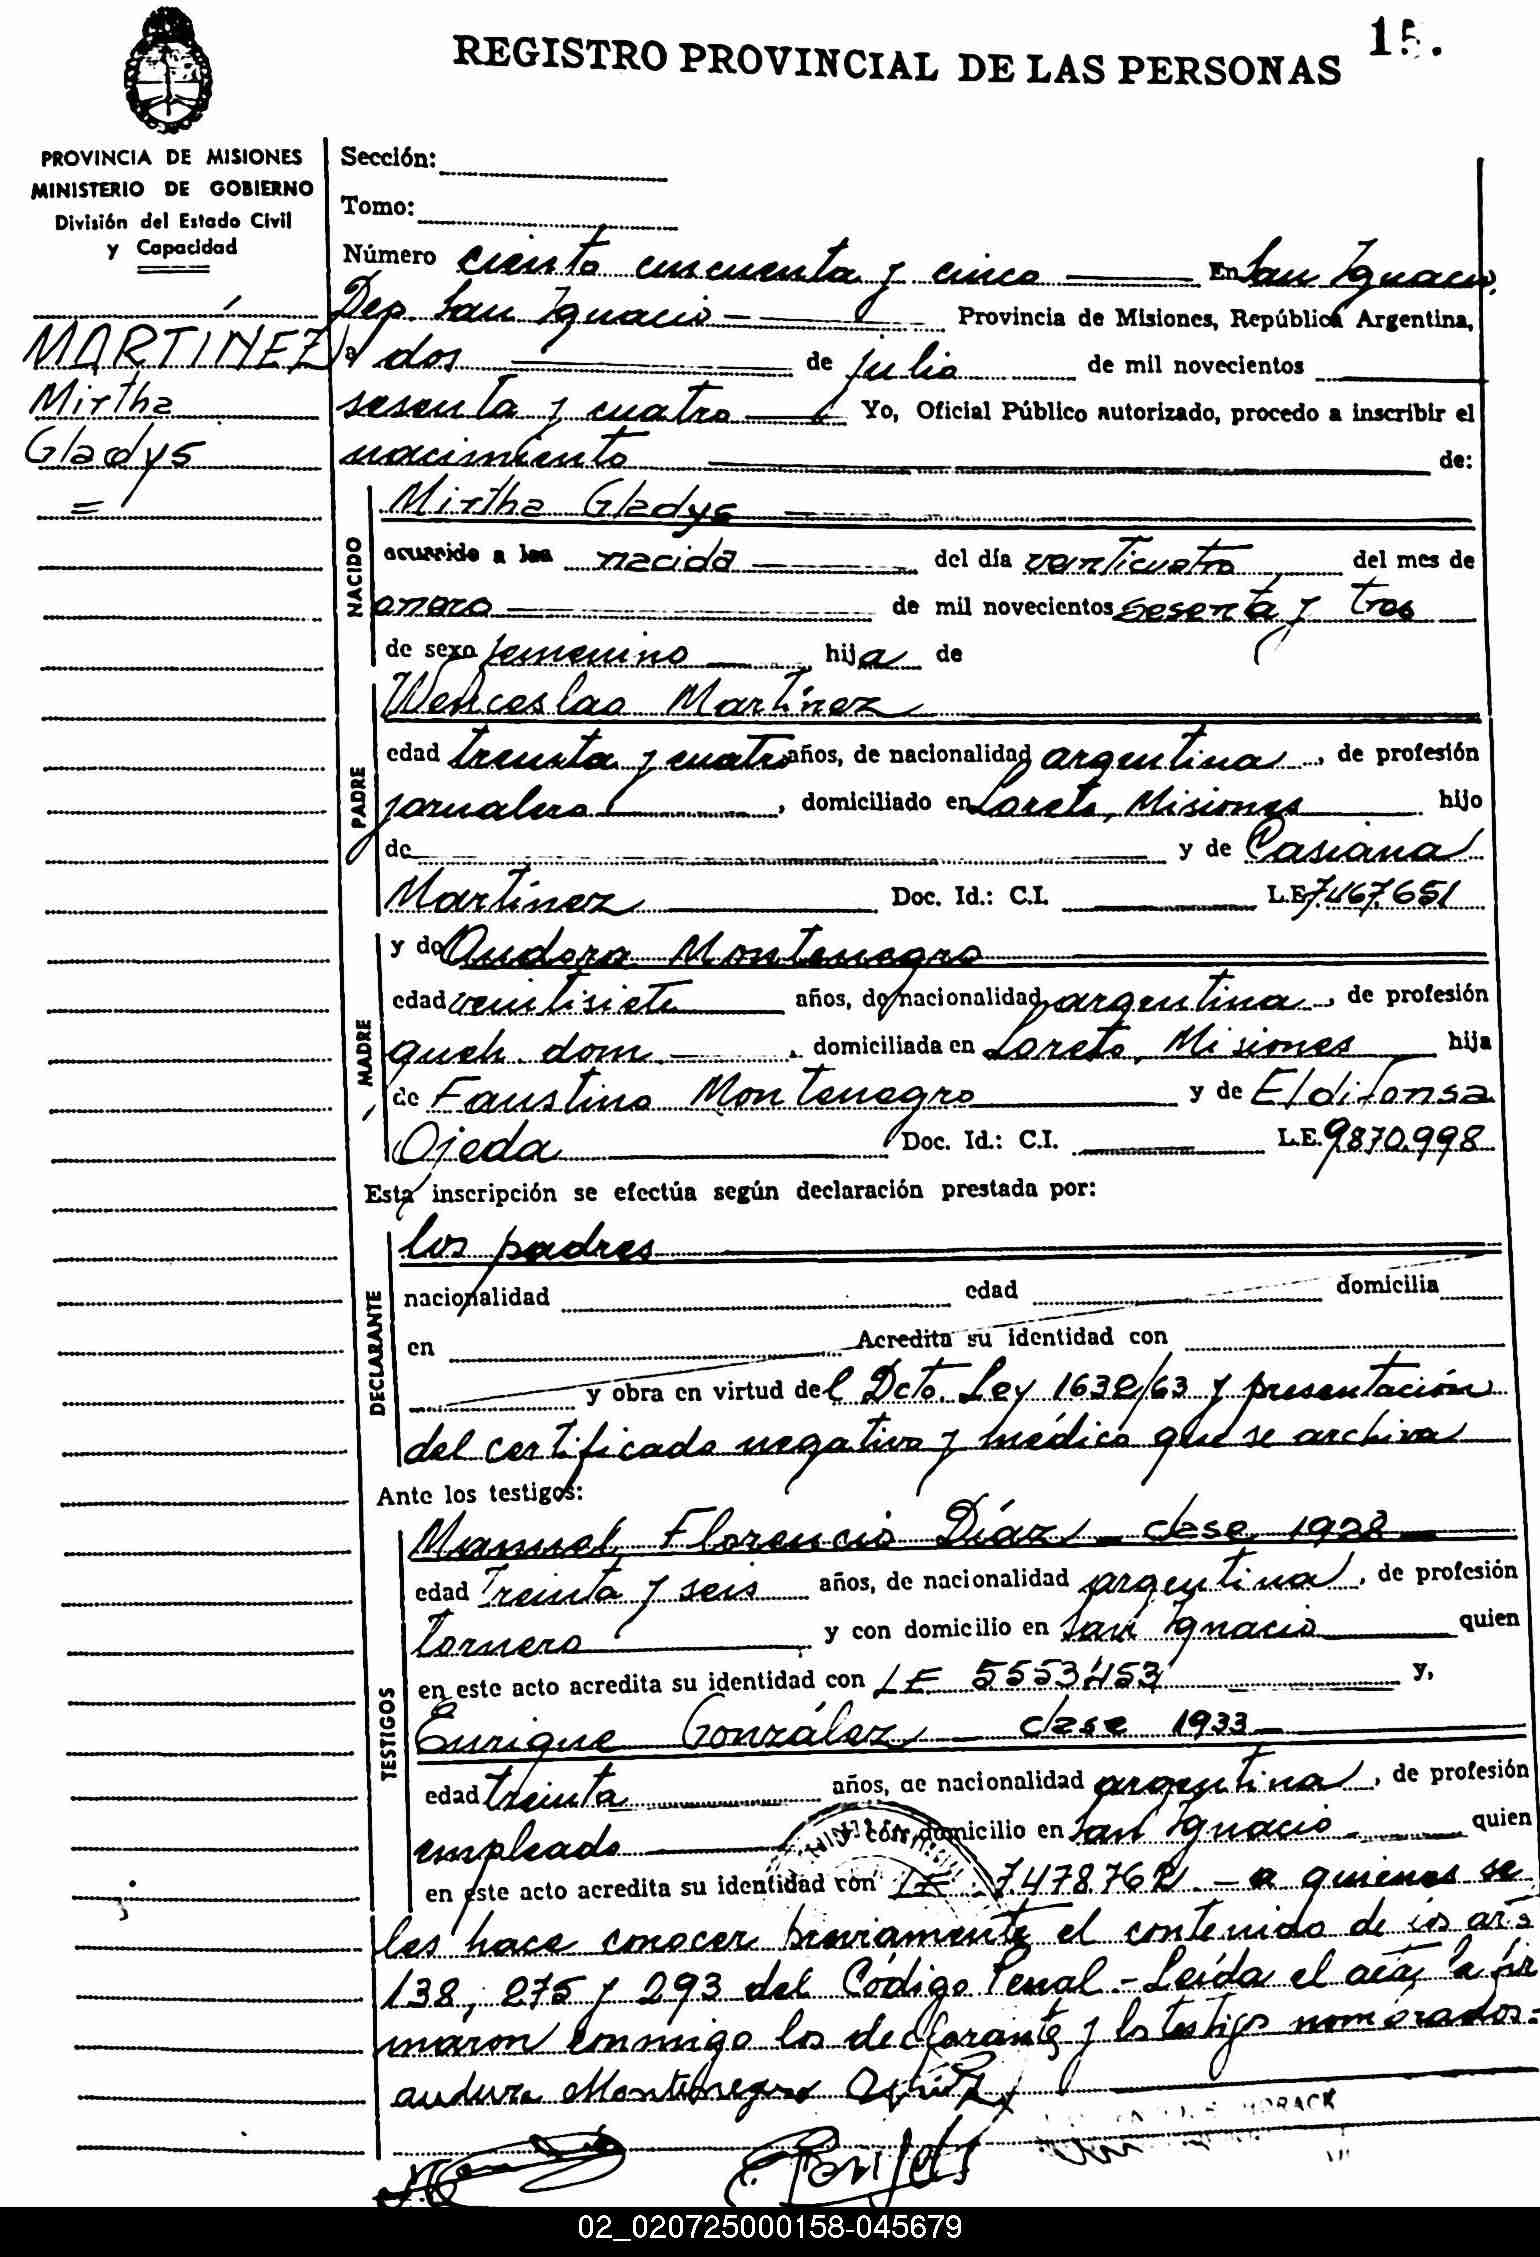 REGISTRO PROVINCIAL DE LAS PERSONAS
PROVINCIA DE MISIONES
MINISTERIO DE GOBIERNO
División del Estado Civil
y Capacidad
MARTÍNEZ
Mirtha
Gladys
=
Sección:
Tomo:
Número ciento cincuenta y cinco En San Ignacio,
Dep. San Ignacio Provincia de Misiones, República Argentina,
a dos de julio de mil novecientos
sesenta y cuatro Yo, Oficial Público autorizado, procedo a inscribir el
nacimiento de:
NACIDO
Mirtha Gladys
ocurrido a las nacida del día venticuatro del mes de
enero de mil novecientos sesenta y tres
de sexo femenino hija de
PADRE
Wenceslao Martínez
edad treinta y cuatro años, de nacionalidad argentina, de profesión
jornalero, domiciliado en Loreto, Misiones hijo
de y de Casiana
Martínez Doc. Id.: C.I. L.E. 7.467.651
MADRE
y de Audora Montenegro
edad ventisiete años, de nacionalidad argentina, de profesión
queh. dom., domiciliada en Loreto, Misiones hija
de Faustino Montenegro y de Eldifonsa
Ojeda Doc. Id.: C.I. L.E. 9.870.998
Esta inscripción se efectúa según declaración prestada por:
DECLARANTE
los padres
nacionalidad edad domicilia
en Acredita su identidad con
y obra en virtud del Dcto. Ley 1632/63 y presentación
del certificado negativo y médico que se archiva
Ante los testigos:
TESTIGOS
Manuel Florencio Díaz - clase 1928
edad Treinta y seis años, de nacionalidad argentina, de profesión
tornero y con domicilio en San Ignacio quien
en este acto acredita su identidad con LE 5553453 y,
Enrique González - clase 1933
edad treinta años, de nacionalidad argentina, de profesión
empleado y con domicilio en San Ignacio quien
en este acto acredita su identidad con LE 7.478.762 - a quienes se
les hace conocer previamente el contenido de los arts
138, 275 y 293 del Código Penal.- Leída el acta la fir
maron conmigo los declarante y los testigos nombrados.=
audora Montenegro
02_020725000158-045679